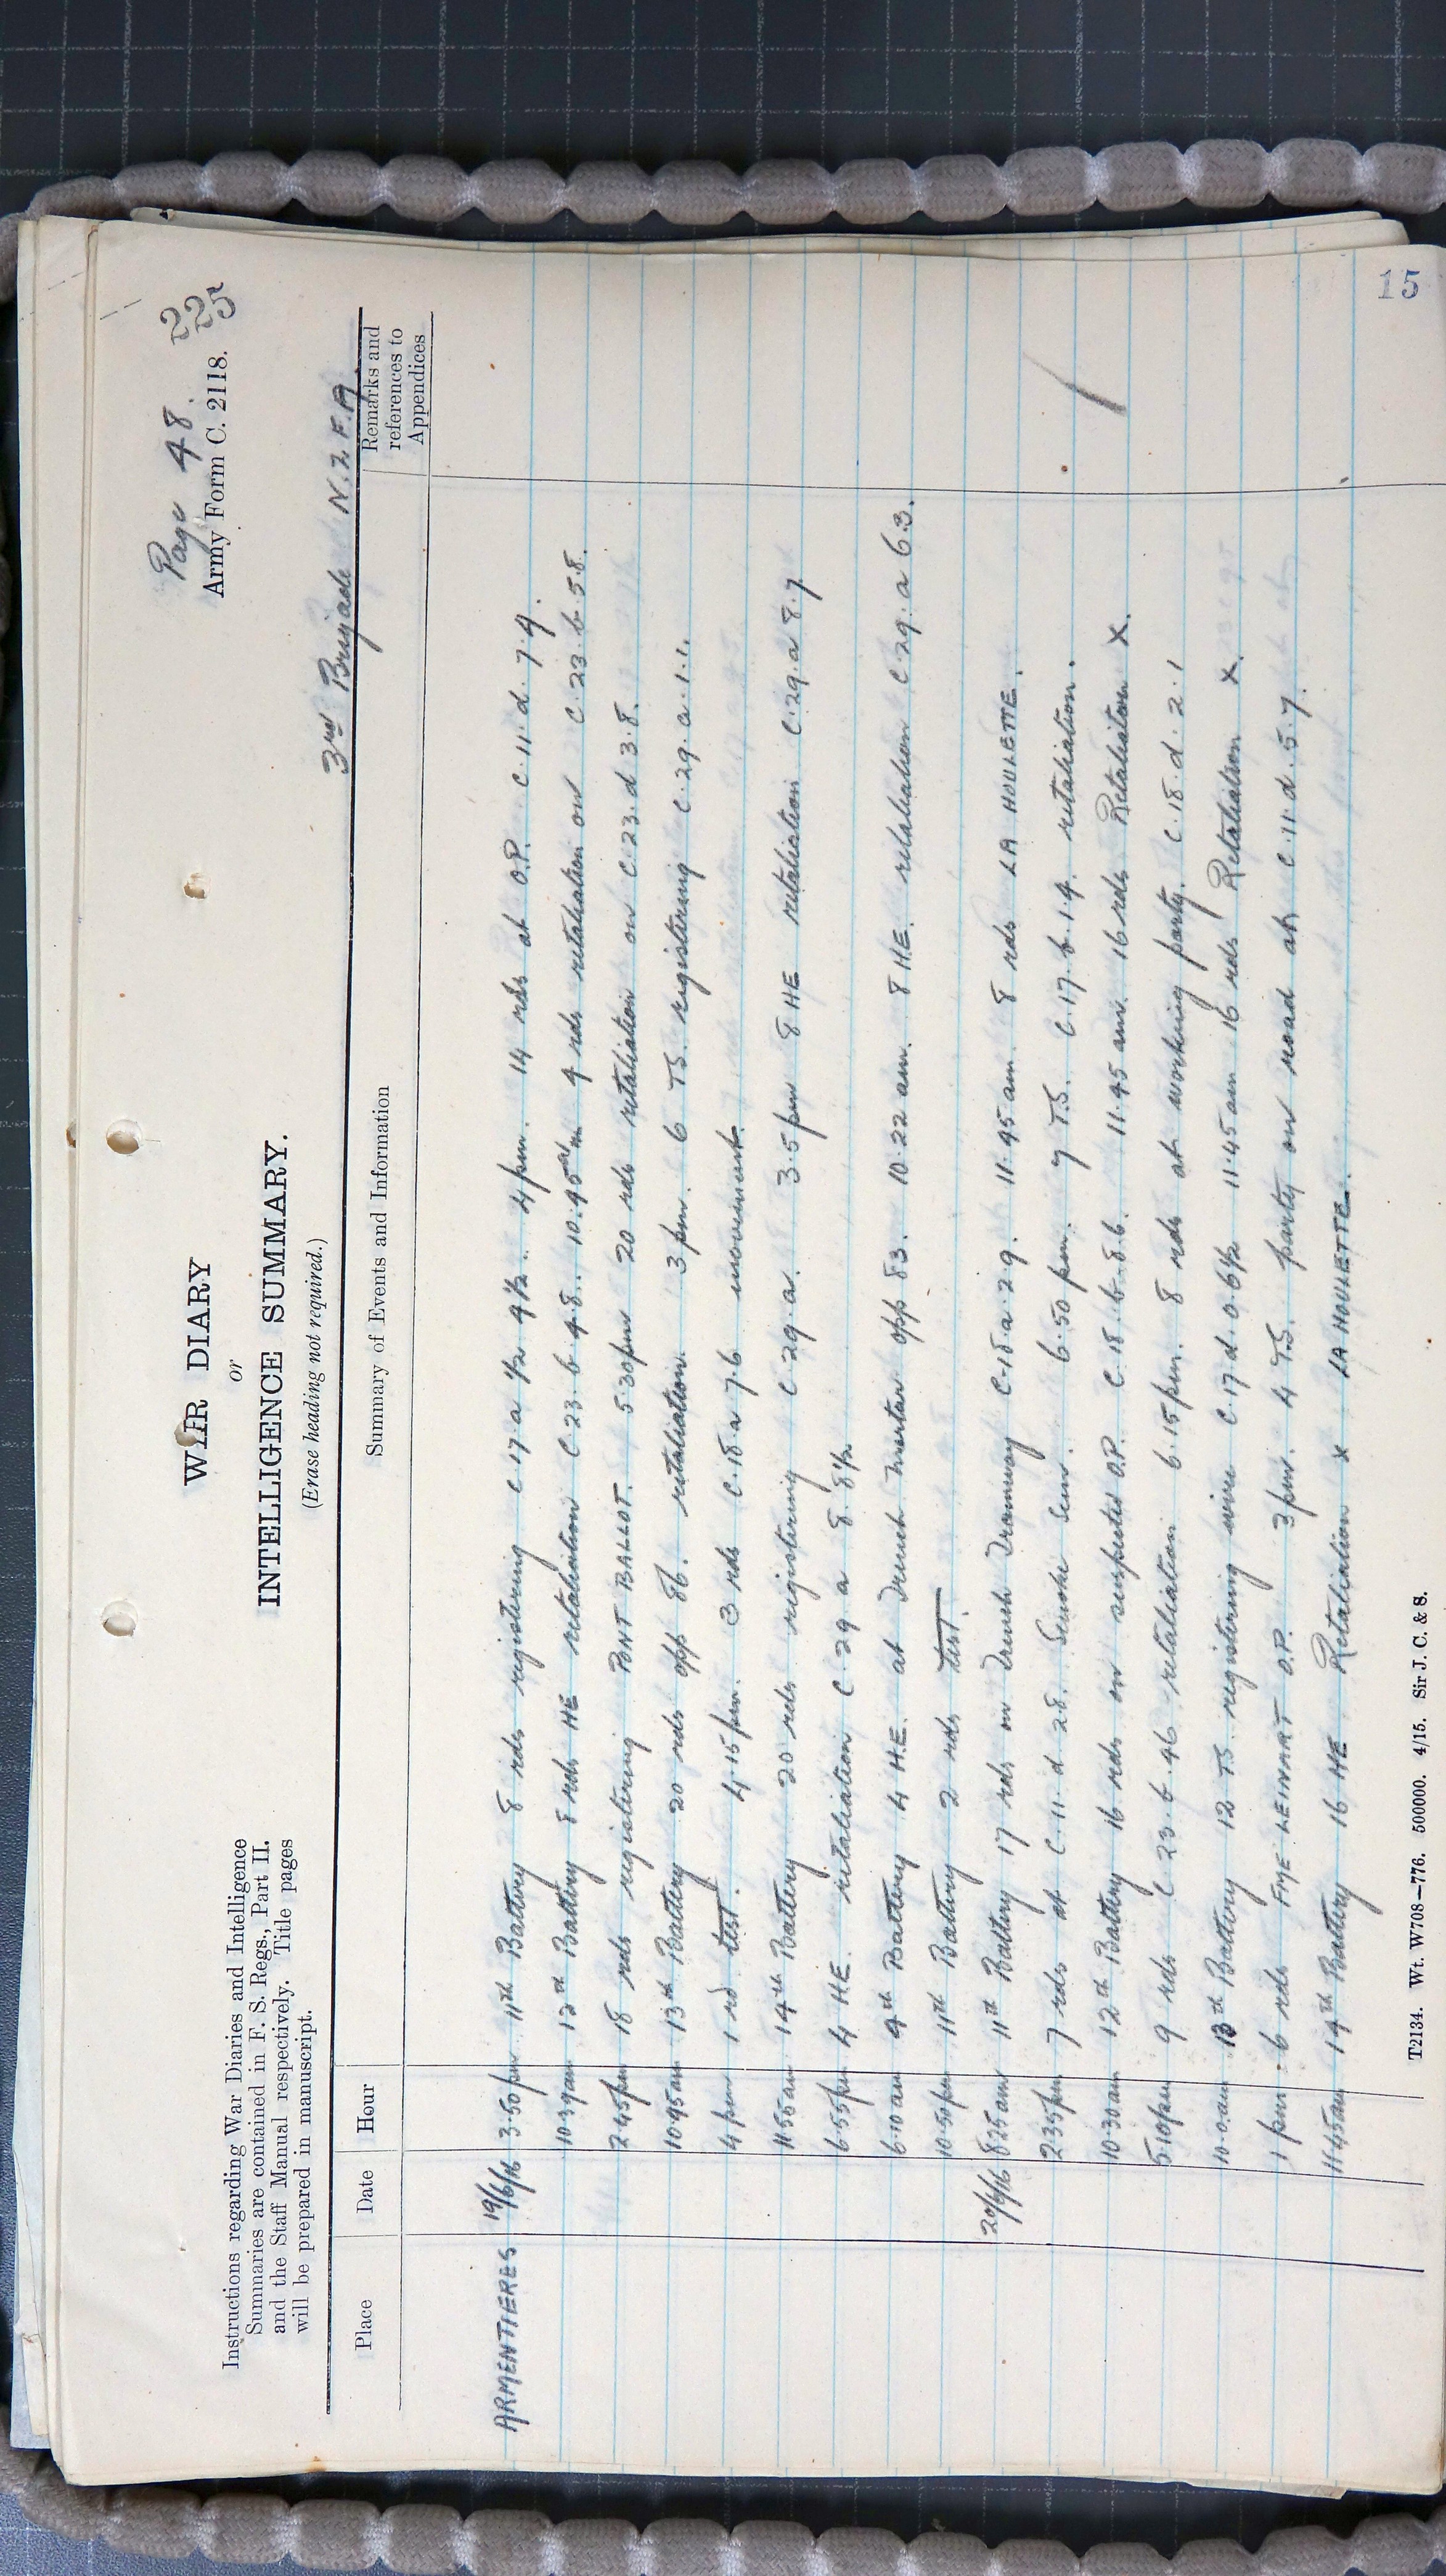 Page 48.
225
Army Form C. 2118.
WAR DIARY
or
INTELLIGENCE SUMMARY.
(Erase heading not required.)
Instructions regarding War Diaries and Intelligence
Summaries are contained in F. S. Regs., Part II.
and the Staff Manual respectively. Title pages
will be prepared in manuscript.
3rd Brigade N.Z.F.A.
Place Date Hour Summary of Events and Information Remarks and references to Appendices
ARMENTIERES 19/6/16 3.50 pm 11th Battery 8 rds registering C 17 a ½ 4½. 4 pm. 14 rds at O.P. C.11.d.7 4.
10.39am 12th Battery 8 rds HE retaliation C 23. b. 4.8. 10.45 a/m 4 rds retaliation on C.23.b.5.8.
2.45pm 18 rds registering PONT BALLOT. 5.30pm 20 rds retaliation on C.23.d 3.8.
10.45am 13th Battery 20 rds opp 86. retaliation. 3 pm. 6 TS. registering C.29.a.1.1.
4 pm 1 rd test. 4.15 pm. 3 rds C.18.a 7.6 movement.
11.55am 14th Battery 20 rds registering C.29.a. 3.5 pm 8 HE retaliation C.29.a 8.7
6.55pm 4 HE. retaliation C.29 a 8.8½
6.10am 4th Battery 4 H.E. at Trench Mortar opp 83. 10.22 am. 8 HE. retaliation C.29.a 6.3.
10.50pm 11th Battery 2 rds test.
20/6/16 8.25am 11th Battery 17 rds on Trench Tramway C.18.a.2 9. 11.45 am. 8 rds LA HOULETTE.
2.35pm 7 rds at C.11.d.28. Smoke seen. 6.50 pm. 7 T.S. C.17.b.1.4. retaliation.
10.30am 12th Battery 16 rds on suspected O.P. C.18.b.8.6. 11.45 am. 16 rds Retaliation X.
5.10pm 9 rds C.23.b.46 retaliation 6.15 pm. 8 rds at working party. C.18.d.2.1
10.0am 13th Battery 12 TS. registering wire C.17.d.0.6½ 11.45am 16 rds Retaliation X.
1 pm. 6 rds FME LENHART O.P. 3 pm. 4 T.S. party on road at C.11.d.5.7.
11.45am 14th Battery 16 HE Retaliation X LA HOULETTE.
T2134. Wt. W708—776. 500000. 4/15. Sir J. C. & S.
15